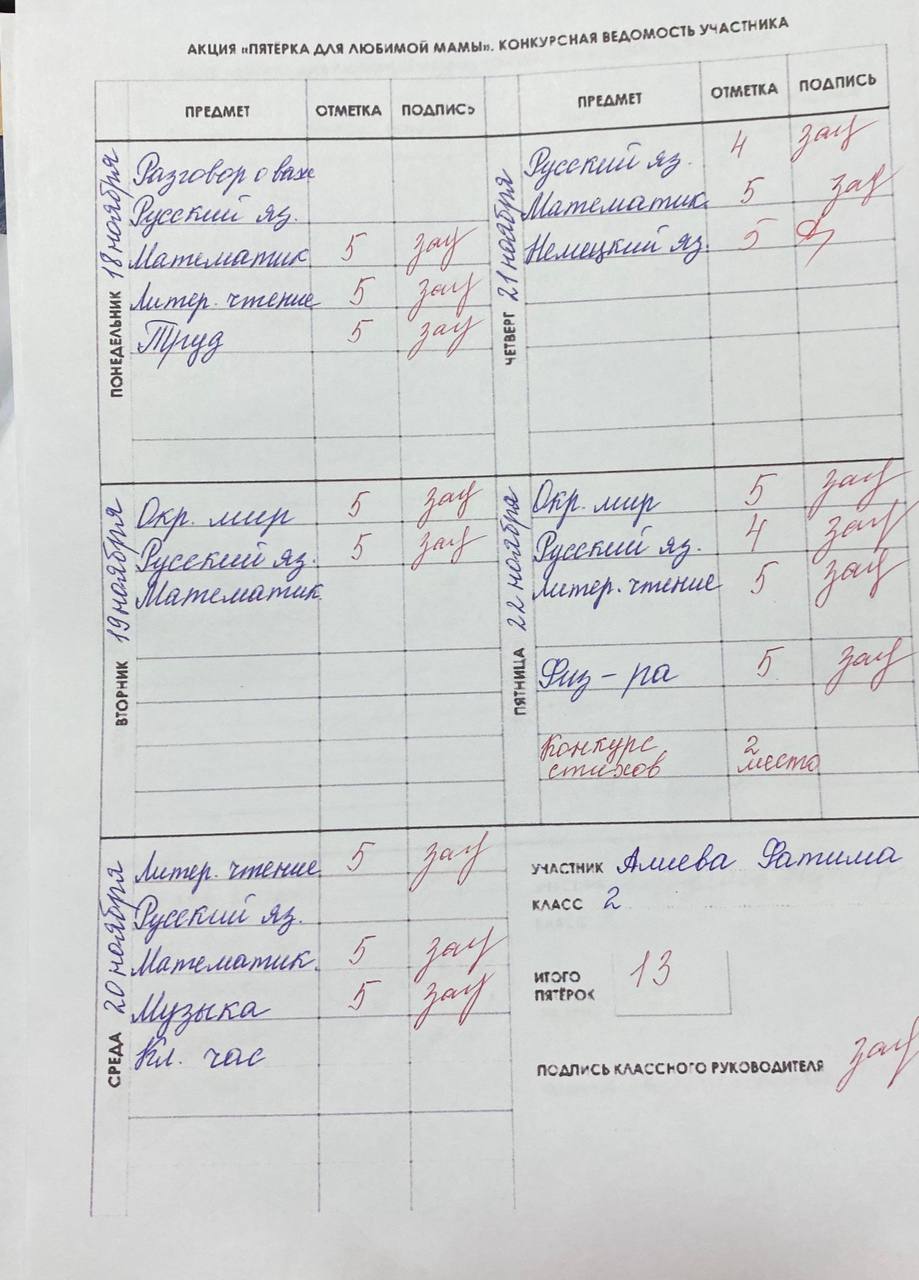 АКЦИЯ «ПЯТЁРКА ДЛЯ ЛЮБИМОЙ МАМЫ». КОНКУРСНАЯ ВЕДОМОСТЬ УЧАСТНИКА
ПРЕДМЕТ ОТМЕТКА ПОДПИСЬ
ПОНЕДЕЛЬНИК 18 ноября
Разговор о важ
Русский яз.
Математик 5 зау
Литер. чтение 5 зау
Труд 5 зау
ВТОРНИК 19 ноября
Окр. мир 5 зау
Русский яз. 5 зау
Математик
СРЕДА 20 ноября
Литер. чтение 5 зау
Русский яз.
Математик. 5 зау
Музыка 5 зау
Кл. час
ПРЕДМЕТ ОТМЕТКА ПОДПИСЬ
ЧЕТВЕРГ 21 ноября
Русский яз. 4 зау
Математик. 5 зау
Немецкий яз. 5
ПЯТНИЦА 22 ноября
Окр. мир 5 зау
Русский яз. 4 зау
Литер. чтение 5 зау
Физ-ра 5 зау
Конкурс 2
стихов место
УЧАСТНИК Алиева Фатима
КЛАСС 2
ИТОГО 13
ПЯТЁРОК
ПОДПИСЬ КЛАССНОГО РУКОВОДИТЕЛЯ зау